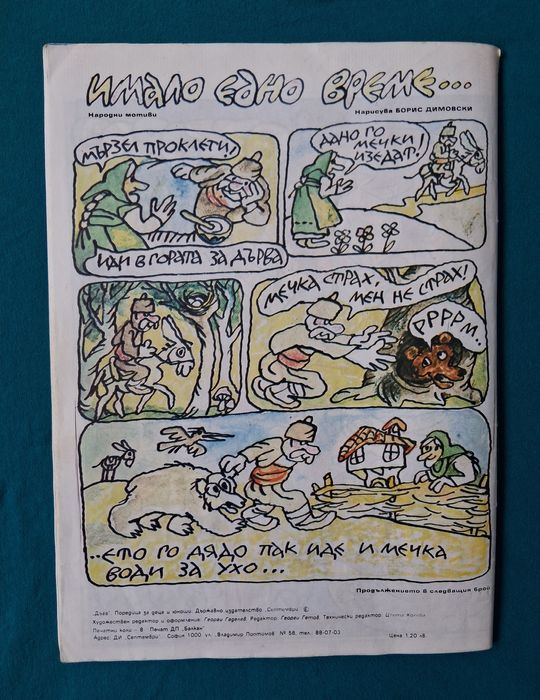 ИМАЛО ЕДНО ВРЕМЕ...
Народни мотиви
Нарисува БОРИС ДИМОВСКИ
МЪРЗЕЛ ПРОКЛЕТИ!
ИДИ В ГОРАТА ЗА ДЪРВА
ДАНО ГО
МЕЧКИ
ИЗЕДАТ!
МЕЧКА СТРАХ,
МЕН НЕ СТРАХ!
РРРРМ..
..ЕТО ГО ДЯДО ПАК ИДЕ И МЕЧКА
ВОДИ ЗА УХО...
Продължението в следващия брой
„Дъга“. Поредица за деца и юноши. Държавно издателство „Септември“
Художествен редактор и оформление: Георги Гаделев. Редактор: Георги Гетов. Технически редактор:
Печатни коли – 8 Печат ДП „Балкан“
Адрес: ДИ „Септември“, София 1000 ул. „Владимир Поптомов“ № 58, тел. 88-07-03
Цена 1,20 лв.